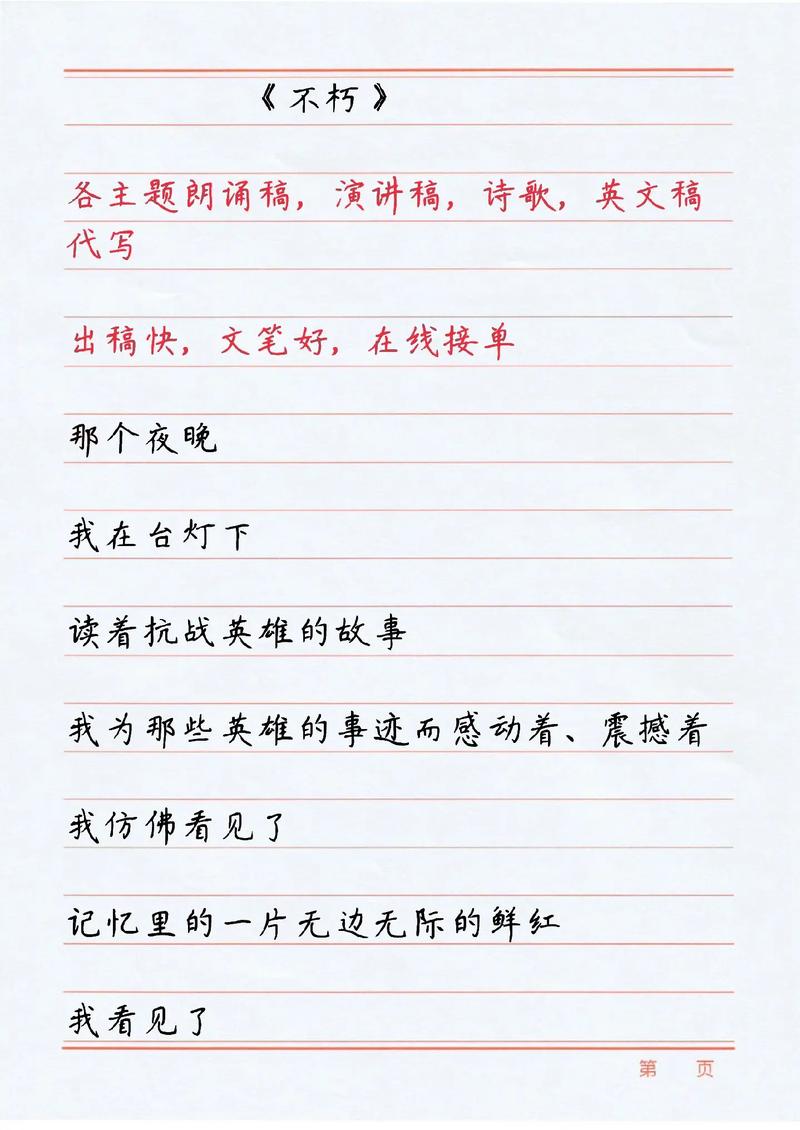 《不朽》
各主题朗诵稿，演讲稿，诗歌，英文稿
代写
出稿快，文笔好，在线接单
那个夜晚
我在台灯下
读着抗战英雄的故事
我为那些英雄的事迹而感动着、震撼着
我仿佛看见了
记忆里的一片无边无际的鲜红
我看见了
第 页